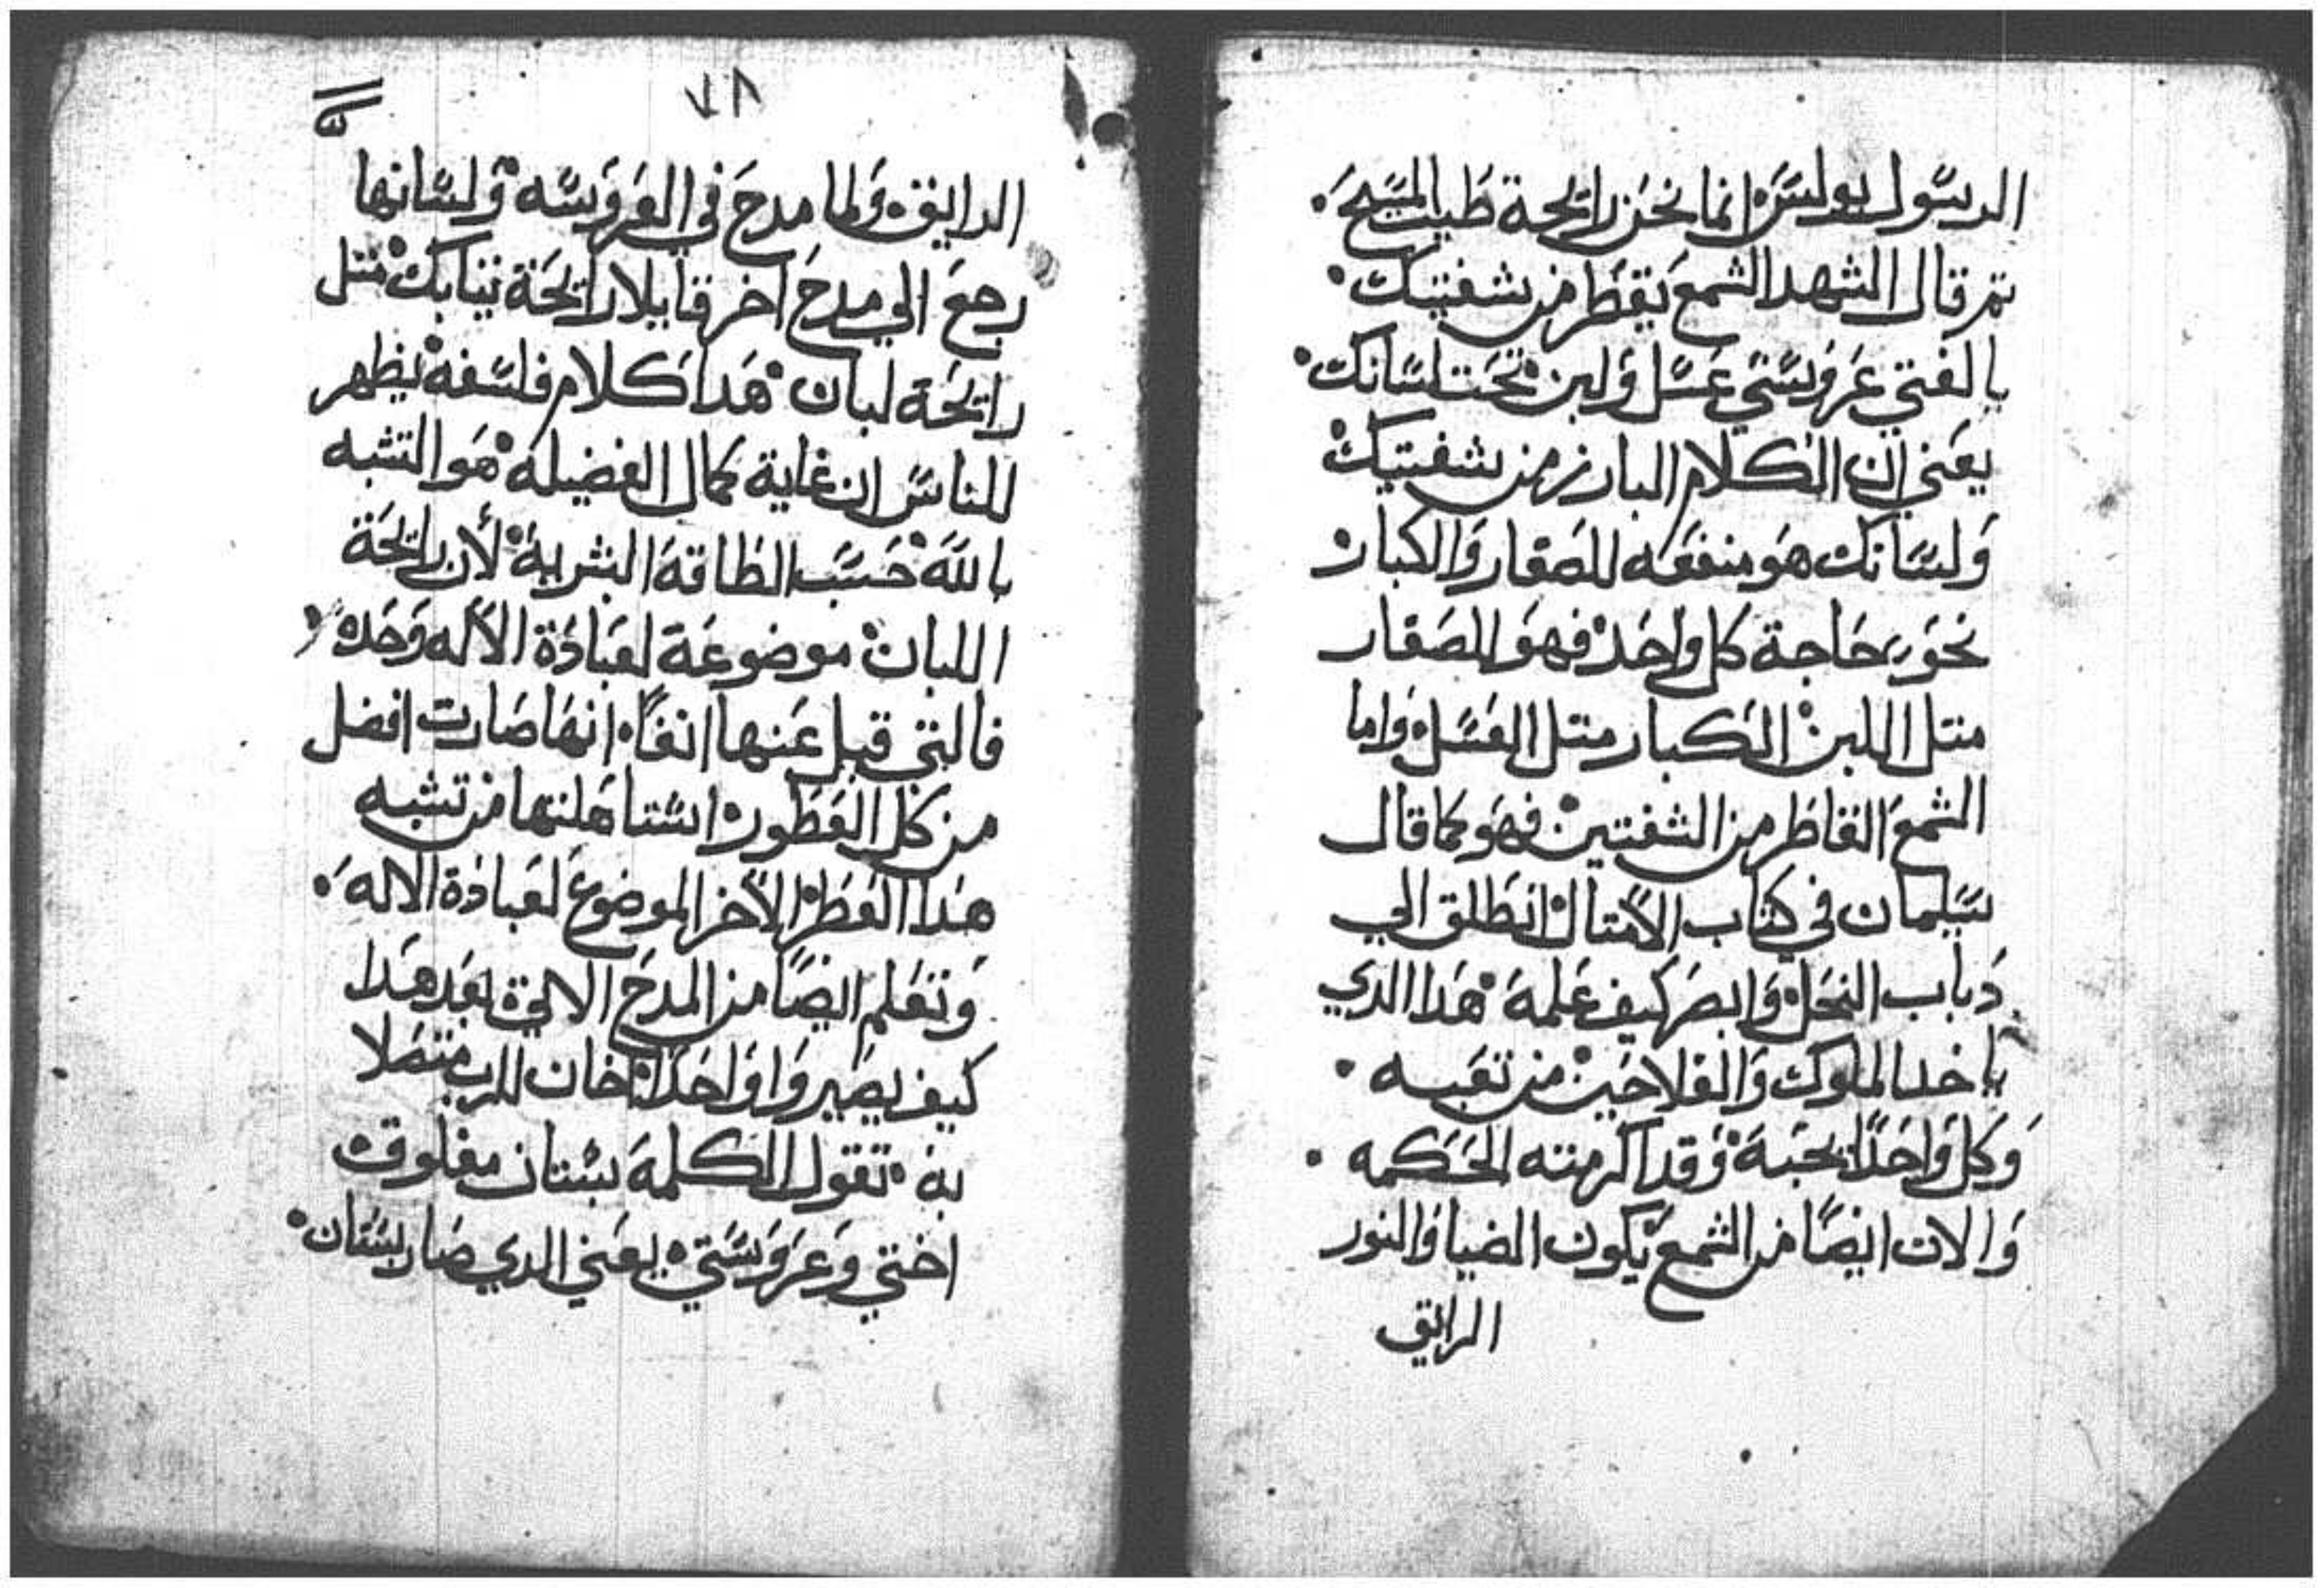 الرسول بولس انما نحن رايحة طيب المسيح.
تم قال الشهد الشمع يقطر من شفتيك.
يا لفتي عروستي عسل ولبن تحت لسانك.
يعني ان الكلام البارز من شفتيك
ولسانك هو منفعه للصغار والكبار
نحو حاجة كل واحد فهو الصغار
متل اللبن الكبار متل العسل واما
الشمع القاطر من الشفتين فهو كما قال
سليمان في كتاب الأمتال انطلق الي
دباب النحل وابصر كيف عملة هدا الدي
ياخد الملوك والفلاحين من تعبه.
وكل واحدا يحبة وقد اكرمته الحكمه.
والان ايضا من الشمع يكون الضيا والنور
الرايق
٧٨
الرايق. ولما مدح في العروسه ولسانها
رجع الي مدح اخر قايلا رايحة تيابك متل
رايحة لبان. هدا كلام فلسفه يظهر
للناس ان غاية كمال الفضيله هو التشبه
بالله حسب الطاقة البشرية لأن رايحة
اللبان موضوعة لعبادة الأله وحده
فالتي قيل عنها انفا. انها صارت افضل
من كل العطور استاهلتها من تشبه
هدا العطر الأخر الموضوع لعبادة الاله.
وتعلم ايضا من المدح الاتية بعد هدا
كيف يصيروا واحدا خان للرب متصلا
به. تقول الكلمة بستان مغلوق
اختي وعروستي. يعني الدي صار بستان.